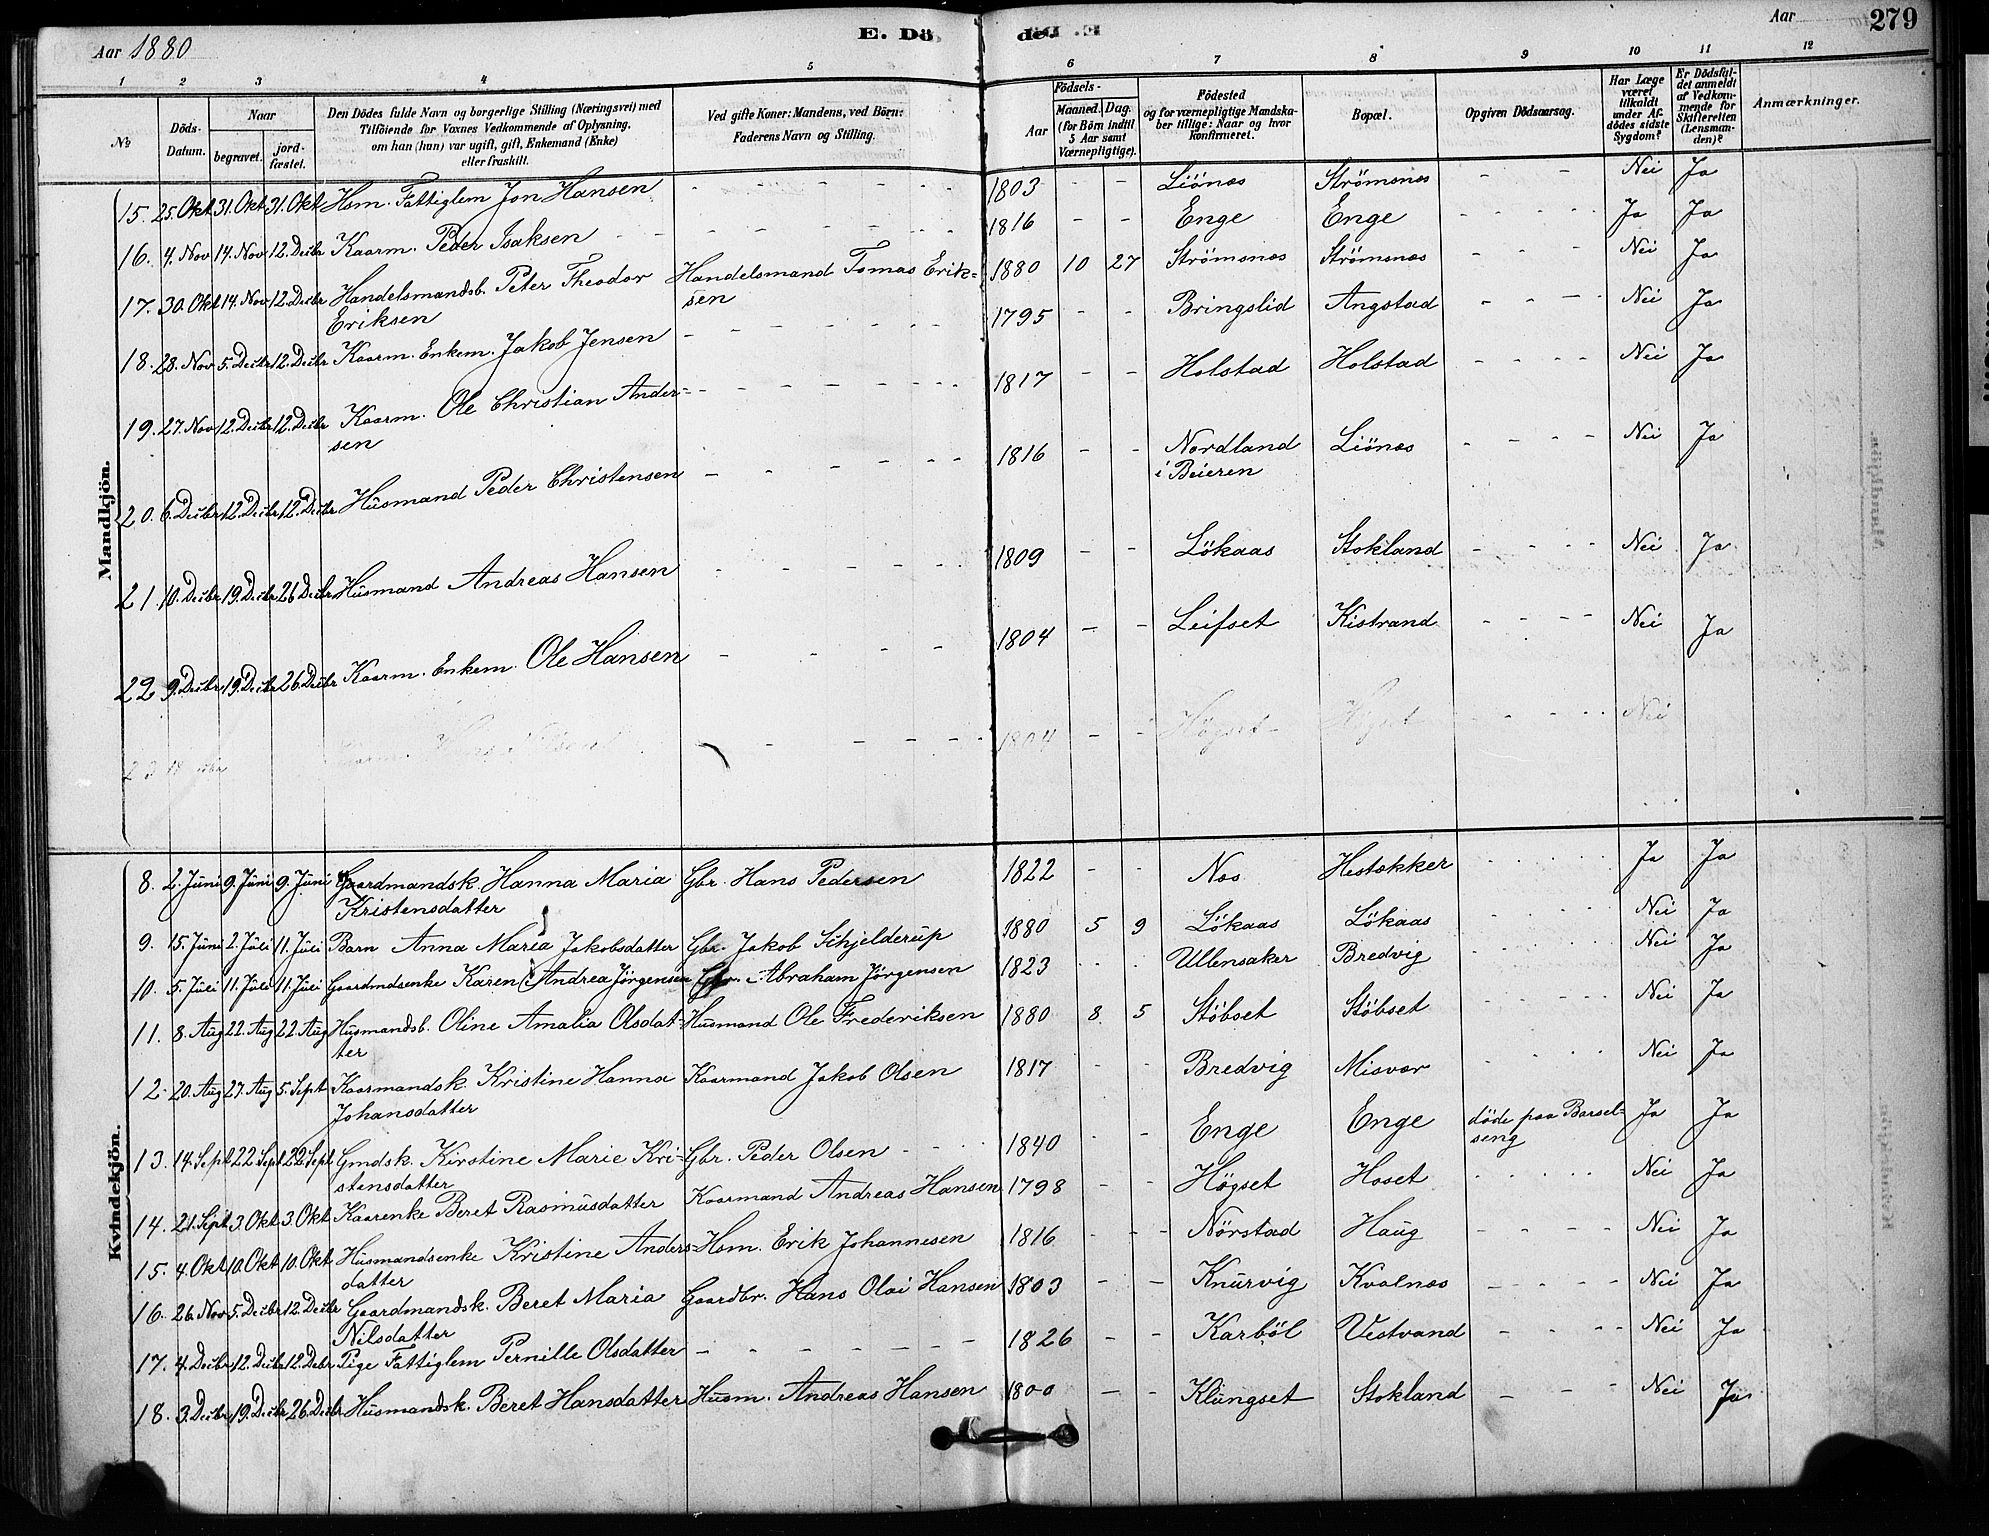 Aar 1880
E. Dö
de.
Aar
279
1 2 3 4 5 6 7 8 9 10 11 12
№
Döds-Datum.
Naar
begravet.
jord-fæstet.
Den Dödes fulde Navn og borgerlige Stilling (Næringsvei) med
Tilföiende for Voxnes Vedkommende af Oplysning,
om han (hun) var ugift, gift, Enkemand (Enke)
eller fraskilt.
Ved gifte Koner: Mandens, ved Börn:
Faderens Navn og Stilling.
Födsels-
Aar
Maaned. Dag.
(for Börn indtil
5 Aar samt
Værnepligtige).
Födested
og for værnepligtige Mandska-
ber tillige: Naar og hvor
konfirmeret.
Bopæl.
Opgiven Dödsaarsag.
Har Læge
været
tilkaldt
under Af-
dödes sidste
Sygdom?
Er Dödsfal-
det anmeldt
af Vedkom-
mende for
Skifteretten
(Lensman-
den)?
Anmærkninger.
Mandkjön.
15. 25. Okt 31. Okt 31. Okt Hsm. Fattiglem Jon Hansen - 1803 - - Liönæs Strömsnæs - Nei Ja
16. 4. Nov 14. Nov 12. Decbr Kaarm. Peder Isaksen - 1816 - - Enge Enge - Ja Ja
17. 30. Okt 14. Nov 12. Decbr Handelsmandsb. Peter Theodor Handelsmand Tomas Erik- 1880 10 27 Strömsnæs Strömsnæs - Nei Ja
Eriksen sen
18. 28. Nov 5. Decbr 12. Decbr Kaarm. Enkem. Jakob Jensen - 1795 - - Bringslid Angstad - Nei Ja
19. 27. Nov 12. Decbr 12. Decbr Kaarm. Ole Christian Ander- - 1817 - - Holstad Holstad - Nei Ja
sen
20. 6. Decbr 12. Decbr 12. Decbr Husmand Peder Christensen - 1816 - - Nordland Liönæs - Nei Ja
i Beieren
21. 10. Decbr 19. Decbr 26 Decbr Husmand Andreas Hansen - 1809 - - Lökaas Stokland - Nei Ja
22 9. Decbr 19. Decbr 26. Decbr Kaarm. Enkem. Ole Hansen - 1804 - - Leifset Kistrand - Nei Ja
23 1804 - - Högset - Nei
Kvindekjön.
8. 2. Juni 9. Juni 9. Juni Gaardmandsk. Hanna Maria Gbr. Hans Pedersen 1822 - - Nes Hestekker - Ja Ja
Kristensdatter
9. 15. Juni 2. Juli 11. Juli Barn Anna Maria Jakobsdatter Gbr. Jakob Schjelderup 1880 5 9 Lökaas Lökaas - Nei Ja
10. 5. Juli 11. Juli 11. Juli Gaardmdsenke Karen Andrea Jörgensen Gbr. Abraham Jörgensen 1823 - - Ullensaker Bredvig - Nei Ja
11. 8. Aug 22. Aug 22. Aug Husmandsb. Oline Amalia Olsdat- Husmand Ole Frederiksen 1880 8. 5 Stöbset Stöbset - Nei Ja
ter
12. 20. Aug 27. Aug 5. Sept Kaarmandsk. Kristine Hanna Kaarmand Jakob Olsen 1817 - - Bredvig Misvær - Nei Ja
Johansdatter
13. 14. Sept 22 Sept 22 Sept Gmdsk. Kirstine Marie Kri- Gbr. Peder Olsen - 1840 - - Enge Enge döde paa Barsel- Ja Ja
stensdatter seng
14. 21. Sept 3. Okt 3. Okt Kaarenke Beret Rasmusdatter Kaarmand Andreas Hansen 1798 - - Högset Hoset - Nei Ja
15. 4. Okt 10. Okt 10. Okt Husmandsenke Kristine Anders- Hsm. Erik Johannesen 1816 - - Nörstad Haug - Nei Ja
datter
16. 26. Nov 5. Decbr 12. Decbr Gaardmandsk. Beret Maria Gaardbr. Hans Olai Hansen 1803 - - Knurvig Kvalnæs - Nei Ja
Nilsdatter
17. 4. Decbr 12. Decbr 12. Debr Pige Fattiglem Pernille Olsdatter - 1826 - - Karböl Vestvand - Nei Ja
18. 3. Decbr 19. Decbr 26. Decbr Husmandsk. Beret Hansdatter Husm. Andreas Hansen 1800 - - Klungset Stokland - Nei Ja